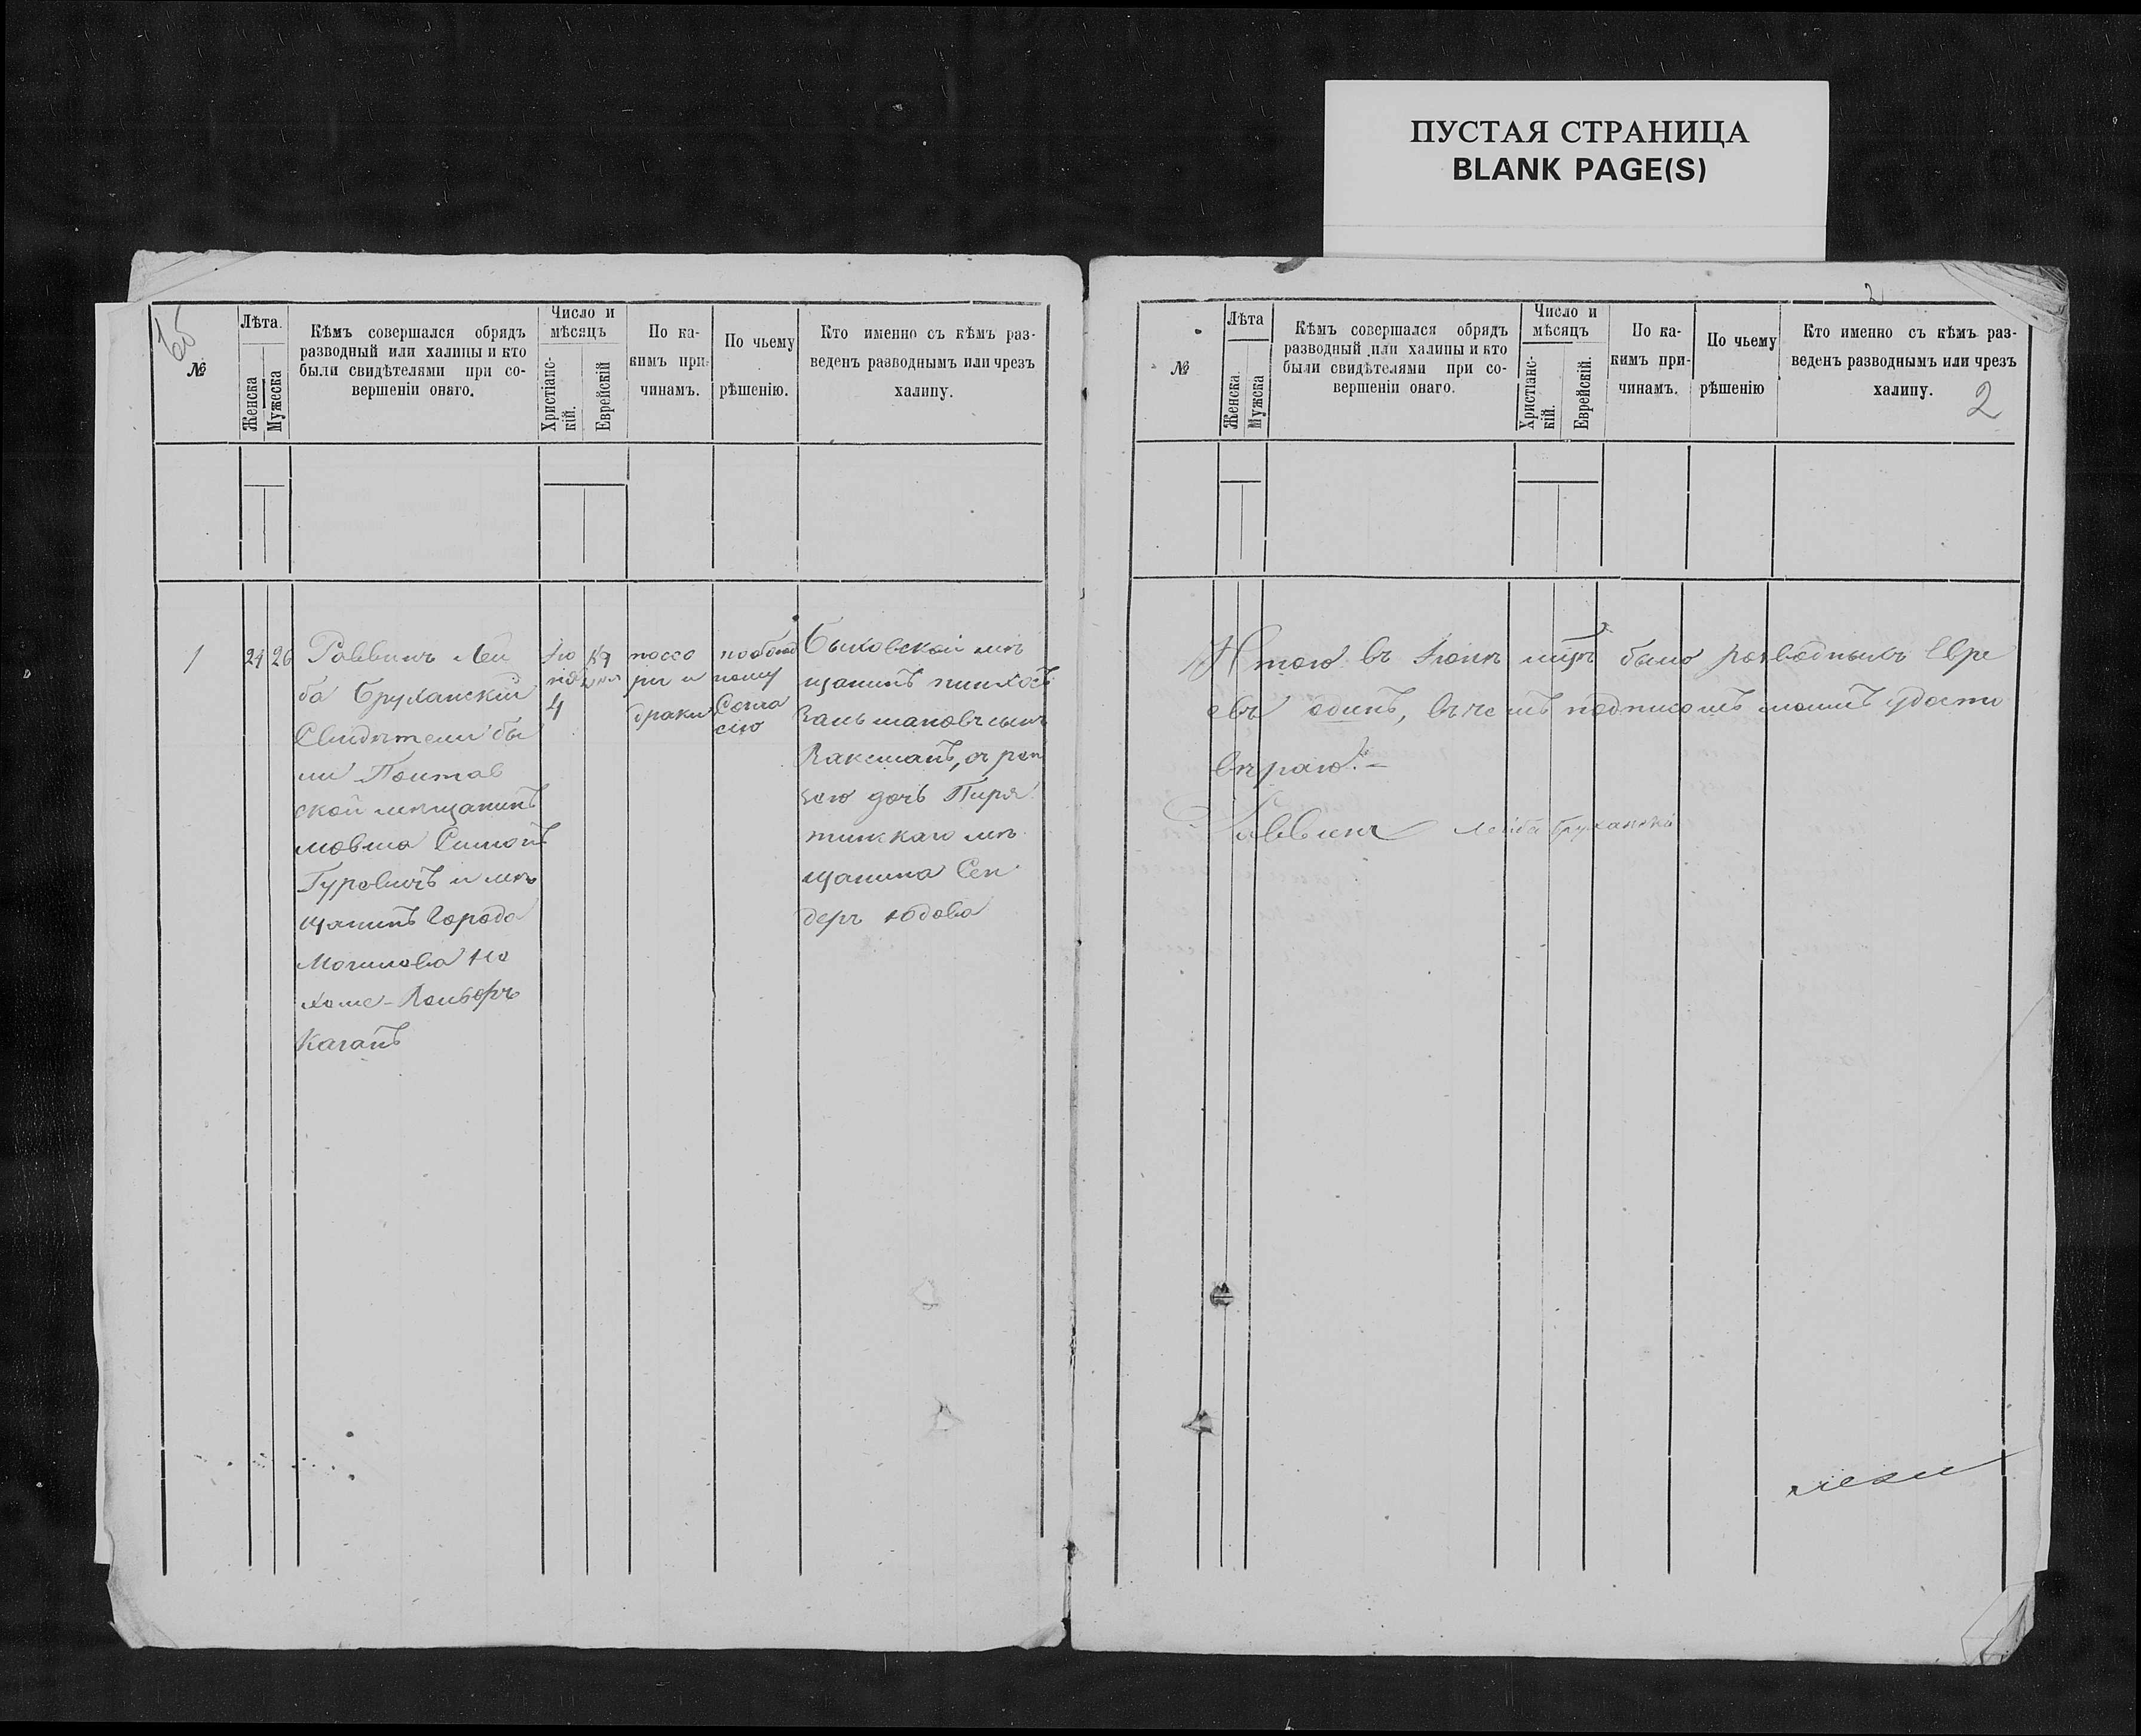 ПУСТАЯ СТРАНИЦА
BLANK PAGE(S)
65
№
Лѣта.
Женска
Мужеска
Кѣмъ совершался обрядъ
разводный или халицы и кто
были свидѣтелями при со-
вершеніи онаго.
Число и
мѣсяцъ
Христіанс-
кій.
Еврейскій
По ка-
кимъ при-
чинамъ.
По чьему
рѣшенію.
Кто именно съ кѣмъ раз-
веденъ разводнымъ или чрезъ
халицу.
1
24
26
Раввинъ Лей
ба Бруханскій
Свидѣтели бы
ли Полтав
ской мѣщанинъ
мовша Симонъ
Гуревичъ и мѣ
щанинъ города
Могилева
Каганъ
Ію
ня
4
поссо
ры и
драки
пообоюд
ному
Согла
сію
Быховской мѣ
щанинъ пинхосъ
Залмановъ сынъ
Ваксманъ,
дочь Пиря
тинскаго мѣ
щанина Сен
деръ Юдова
2
№
Лѣта
Женска.
Мужска
Кѣмъ совершался обрядъ
разводный или халицы и кто
были свидѣтелями при со-
вершеніи онаго.
Число и
мѣсяцъ
Христіанс-
кій.
Еврейскій.
По ка-
кимъ при-
чинамъ.
По чьему
рѣшенію
Кто именно съ кѣмъ раз-
веденъ разводнымъ или чрезъ
халицу.
2
Итого въ Іюнѣ мцѣ было разводныхъ Евре
евъ одинъ, въ чемъ подписомъ моимъ удосто
вѣраю.
Раввинъ Лейба Бруханскій